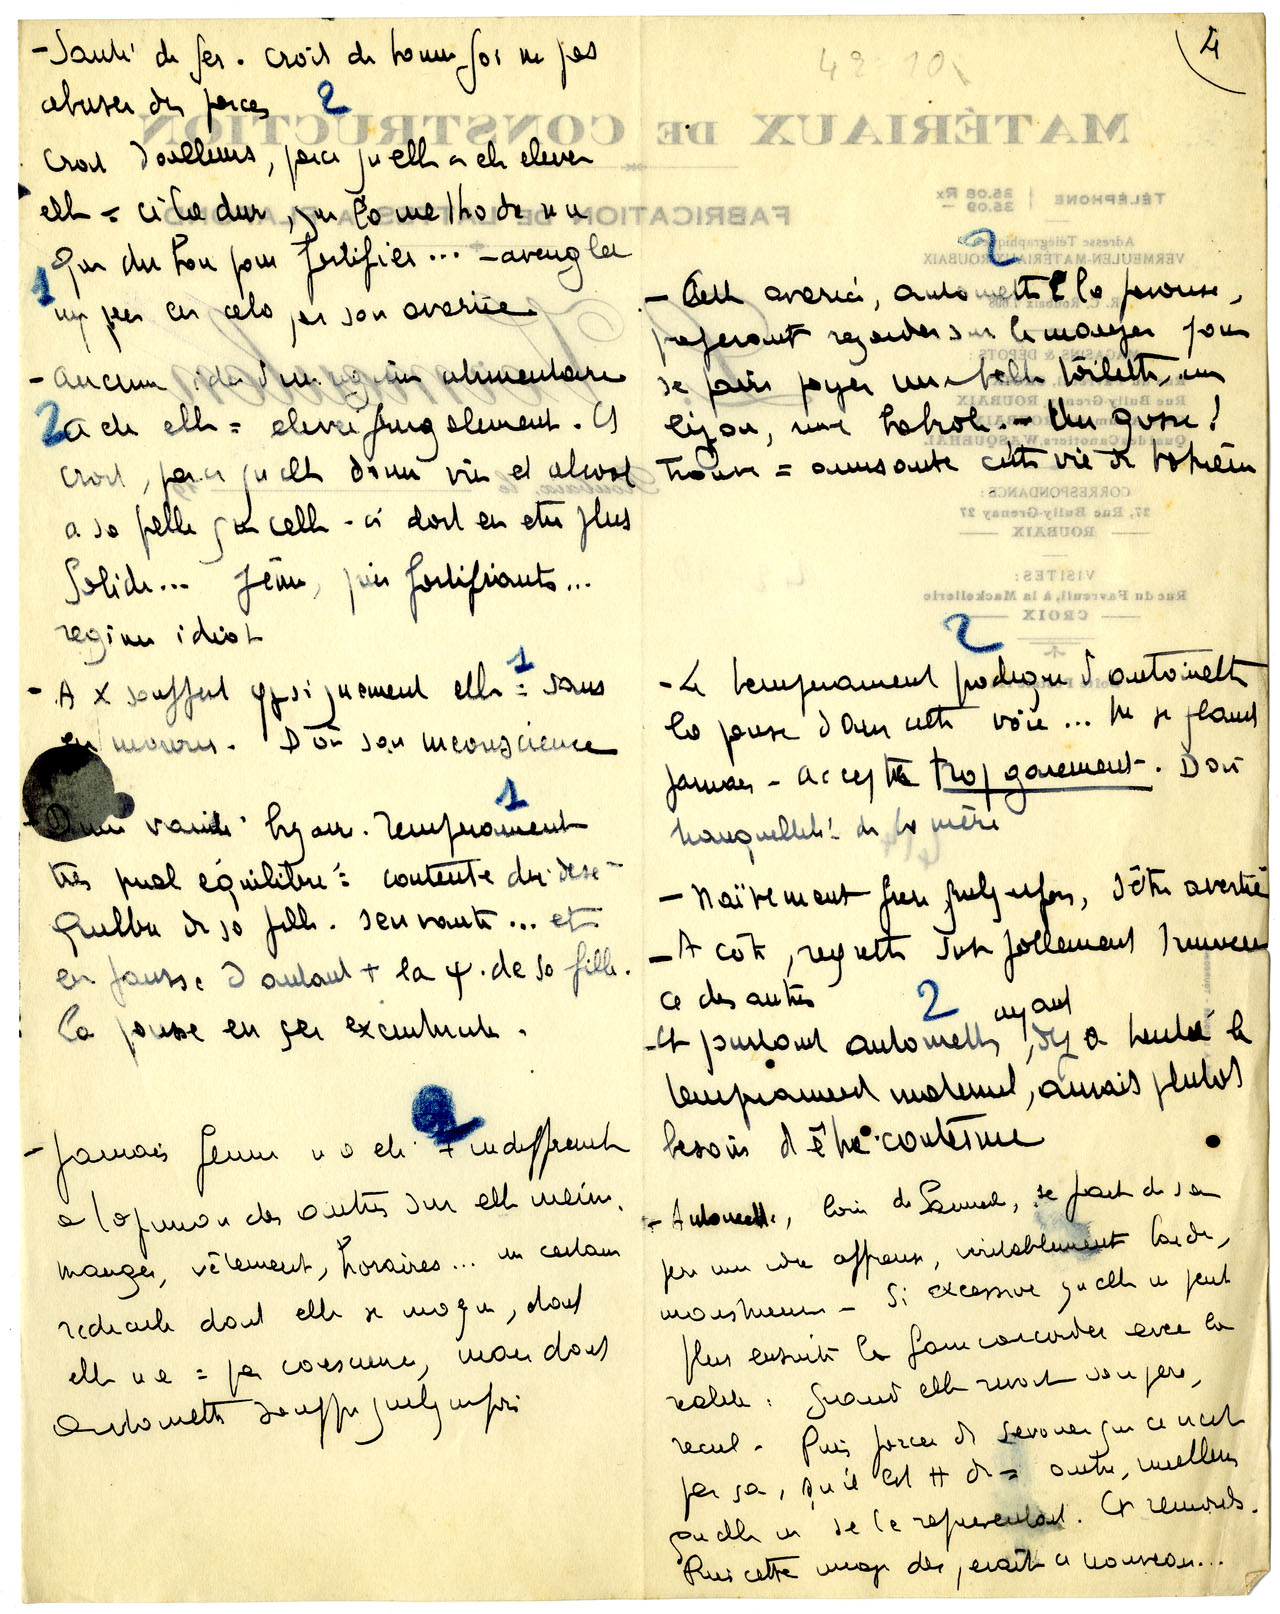 4
- Santé de fer. Croit de bonne foi ne pas
abuser des forces 2
Croit d'ailleurs, parce qu'elle a été élevée
elle = à la dur, que la méthode n'a
que du bon pour fortifier... - aveuglée
1 un peu en cela par son avarice
- Aucune idée d'un régime alimentaire
2 A été elle = élevée frugalement. Et
croit, parce qu'elle donne vin et alcool
a sa fille que celle-ci doit en être plus
solide... Jeûne, puis fortifiants...
regime idiot
1
- A souffert physiquement elle = sans
en mourir. D'où son inconscience
1
- D'une vanité bizarre. Temperament
très mal équilibré = contente du dese-
quilibre de sa fille. S'en vante... et
en fausse d'autant + la ψ. de sa fille.
La pousse en ses excentricités.
2
- Jamais femme n'a été + indifférente
a l'opinion des autres sur elle même.
manger, vêtement, horaires... un certain
ridicule dont elle se moque, dont
elle n'a = pas conscience, mais dont
Antoinette souffre quelquefois
2
- Cette avarice, Antoinette la pousse,
préférant regarder sur le manger pour
se payer une belle toilette, un
bijou, une babiole. - Une gosse!
trouve = amusante cette vie de bohème
2
- Le temperament prodigue d'Antoinette
la pousse dans cette voie... Ne se plaint
jamais - Accepte trop gaiement. D'où
tranquillité de la mère
- Naïvement fière, quelquefois, d'être avertie
- A côté, regrette follement l'innocen
ce des autres
2
- Et pourtant Antoinette, ayant hérité le
temperament maternel, aurait plutôt
besoin d'être contenue
- Antoinette, loin de Samuel, se fait de son
père une idée affreuse, véritablement laide,
monstrueuse - Si excessive qu'elle ne peut
plus ensuite la faire concorder avec la
réalité. Quand elle revoit son père,
recul - Puis forcée de s'avouer que ce n'est
pas ça, qu'il est autre, meilleur
qu'elle ne se le représentait. Et remords.
Puis cette image à nouveau...
MATÉRIAUX DE CONSTRUCTION
FABRICATION DE LATTES
TÉLÉPHONE 35.08 Rx 35.09
Adresse Télégraphique
VERMEULEN-MATÉRIAUX-ROUBAIX
R. C. Roubaix
MAGASINS & DÉPÔTS :
Rue Bully-Grenay ROUBAIX
Quai des Canotiers, WASQUEHAL
CORRESPONDANCE :
27, Rue Bully-Grenay 27
ROUBAIX
VISITES :
Rue du Favreuil, à la Mackellerie
CROIX